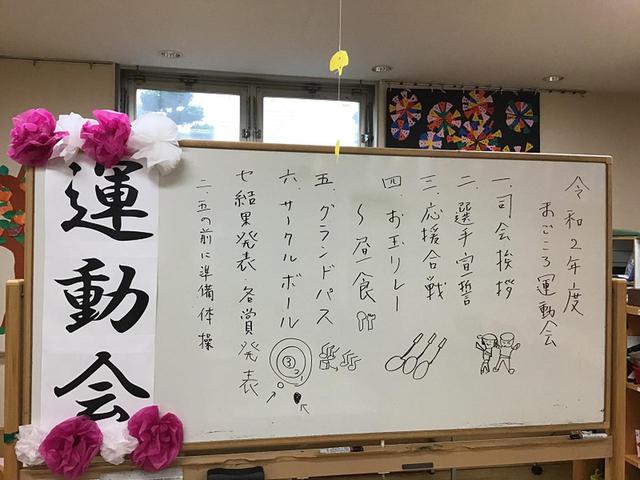 令和2年度
まごころ運動会
一.司会挨拶
二.選手宣誓
三.応援合戦
四.お玉リレー
〜昼食
五.グランドパス
六.サークルボール
③
七 結果発表.各賞発表
二.五の前に準備体操
運動会